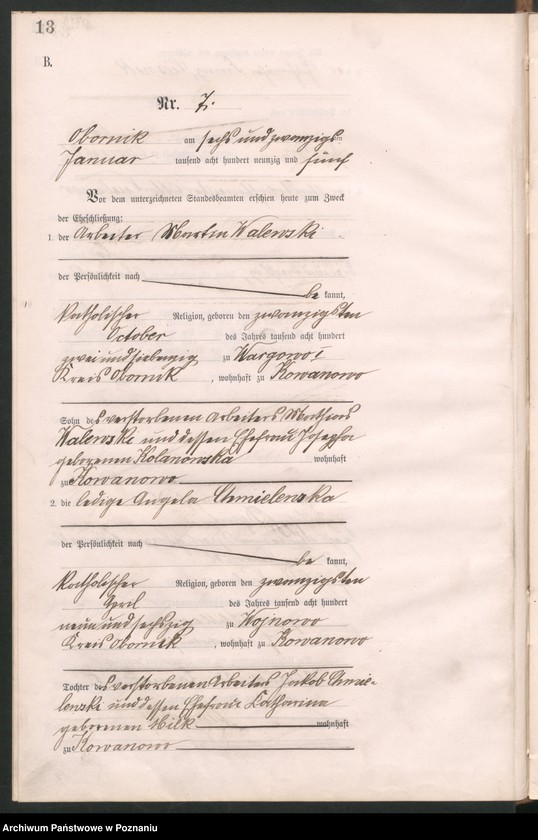 13
B.
Nr. 7.
Obornik am sechs und zwanzigsten
Januar tausend acht hundert neunzig und fünf
Vor dem unterzeichneten Standesbeamten erschien heute zum Zweck
der Eheschließung:
1. der Arbeiter Martin Walenski
der Persönlichkeit nach
be kannt,
katholischer Religion, geboren den zwanzigsten
October des Jahres tausend acht hundert
zwei und siebenzig zu Wargowo,
Kreis Obornik, wohnhaft zu Kowanowo
Sohn des verstorbenen Arbeiters Mathias
Walenski und dessen Ehefrau Josepha
geborenen Kolanowska wohnhaft
zu Kowanowo
2. die ledige Angela Chmielenska
der Persönlichkeit nach
be kannt,
katholischer Religion, geboren den zwanzigsten
April des Jahres tausend acht hundert
neun und sechszig zu Wojnowo
Kreis Obornik, wohnhaft zu Kowanowo
Tochter des verstorbenen Arbeiters Jakob Chmie-
lenski und dessen Ehefrau Katharina
geborenen Wilk wohnhaft
zu Kowanowo
Archiwum Państwowe w Poznaniu